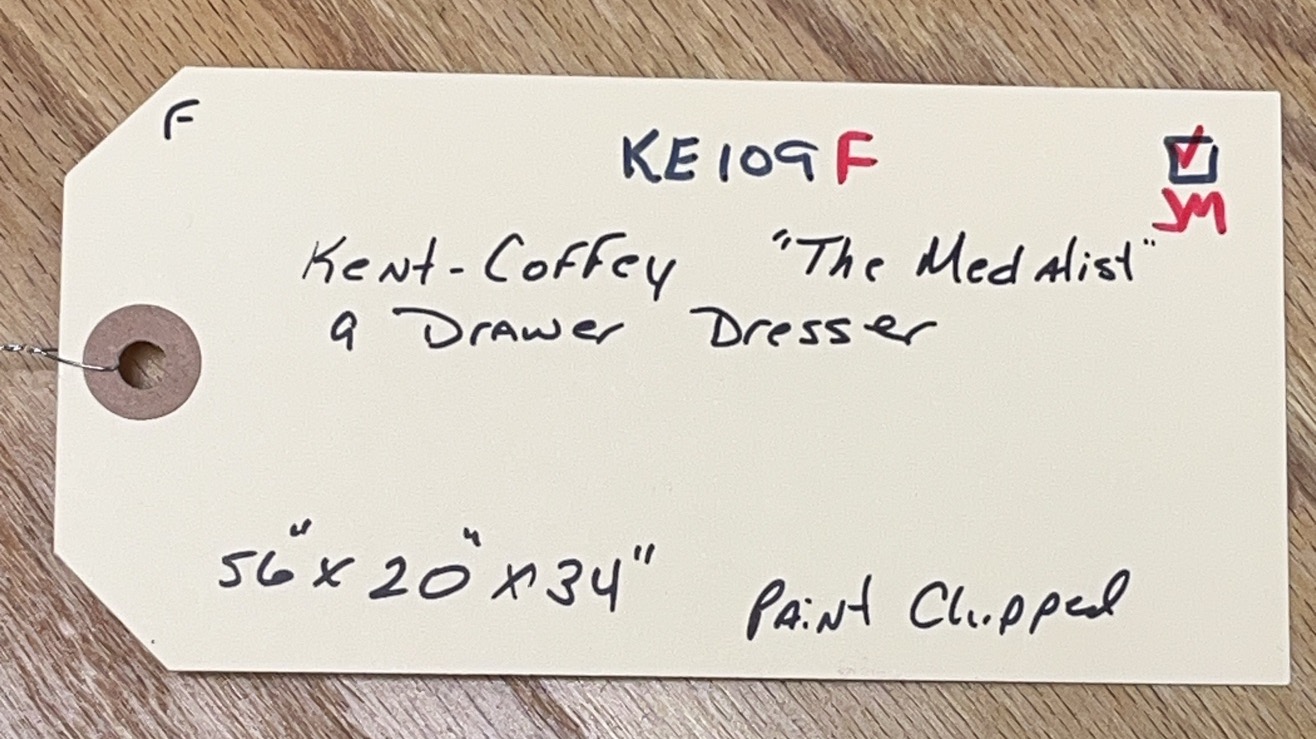 F
KE109F
JM
Kent-Coffey "The Medalist"
9 Drawer Dresser
56" x 20" x 34"
Paint Chipped